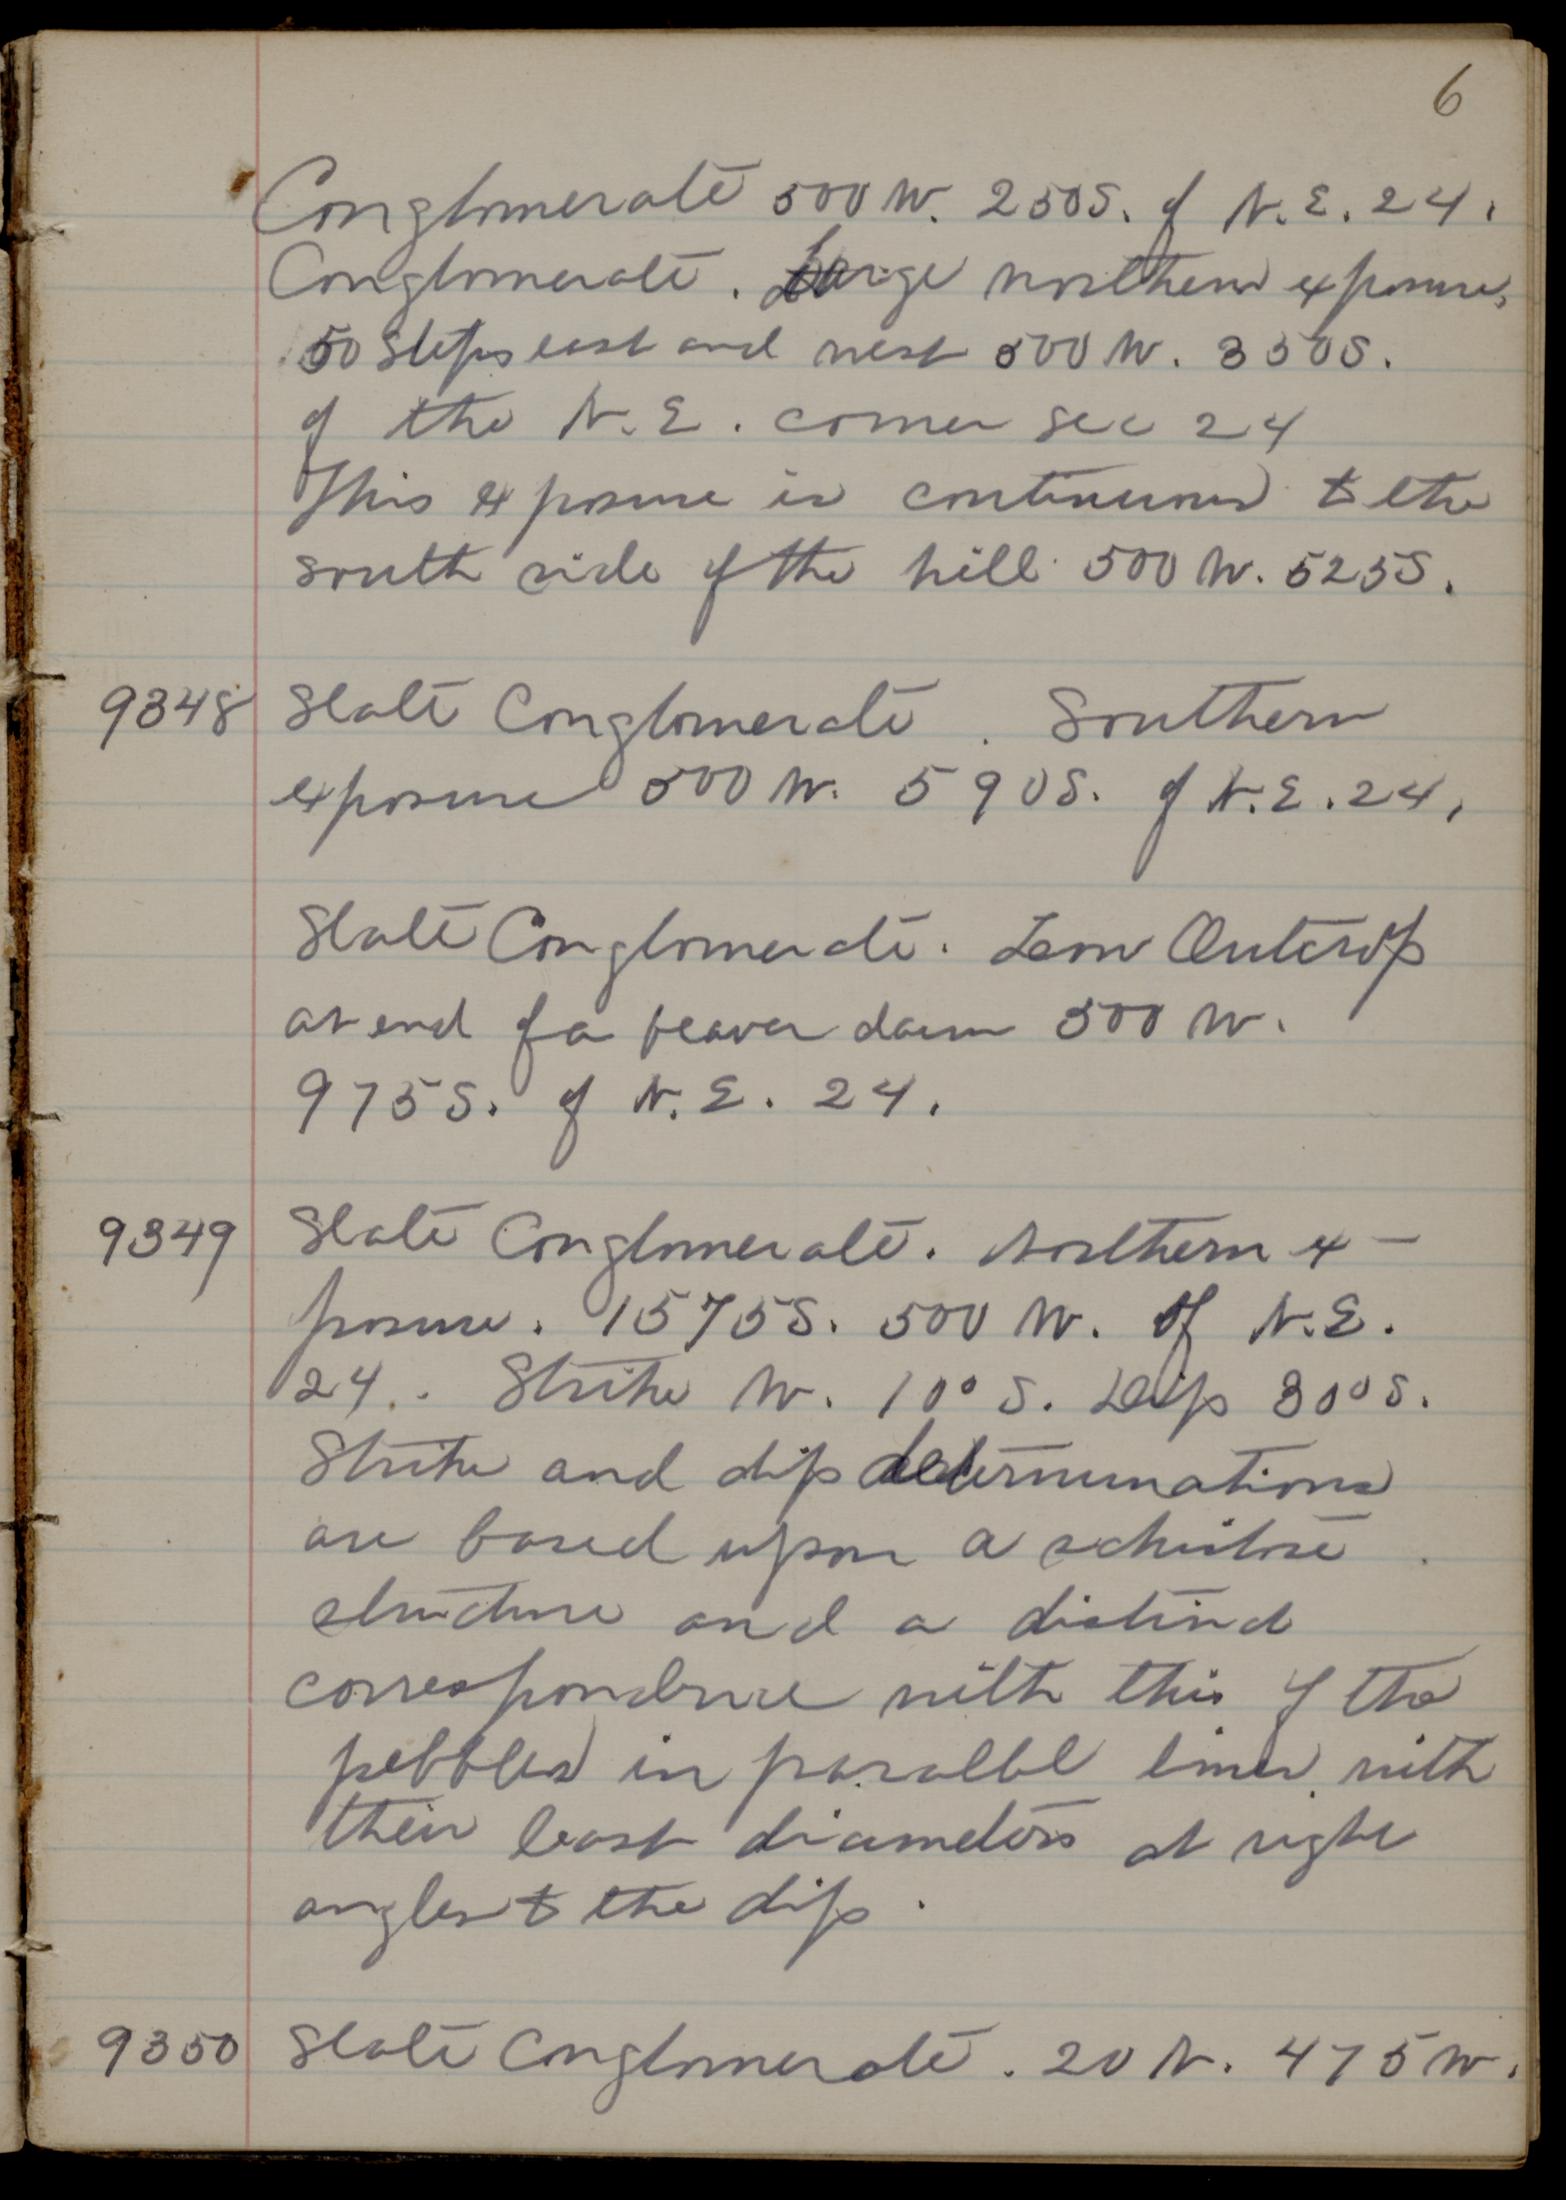 6
Conglomerate 500 W. 250 S. of N.E. 24.
Conglomerate. Large northern exposure,
50 Steps east and west 500 W. 350 S.
of the N.E. corner Sec 24
This exposure is continuous to the
south side of the hill 500 W. 525 S.
9348 Slate Conglomerate. Southern
exposure 500 W. 590 S. of N.E. 24.
Slate Conglomerate. Low Outcrop
at end of a beaver dam 500 W.
975 S. of N.E. 24.
9349 Slate Conglomerate. Northern ex-
posure. 1575 S. 500 W. of N.E.
24. Strike W. 10° S. Dip 80° S.
Strike and dip determinations
are based upon a schistose
structure and a distinct
correspondence with this of the
pebbles in parallel lines with
their least diameters at right
angles to the dip.
9350 Slate Conglomerate. 20 N. 475 W.